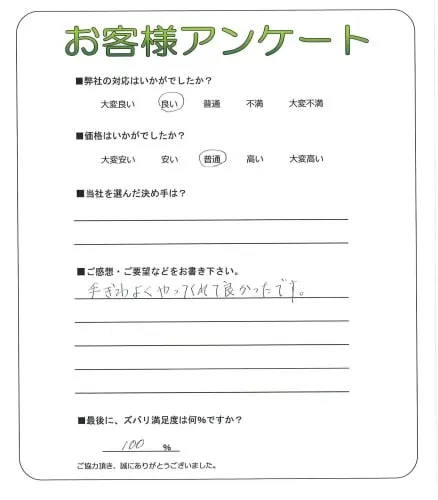 お客様アンケート
■弊社の対応はいかがでしたか？
大変良い 良い 普通 不満 大変不満
■価格はいかがでしたか？
大変安い 安い 普通 高い 大変高い
■当社を選んだ決め手は？
■ご感想・ご要望などをお書き下さい。
手ぎわよくやってくれて良かったです。
■最後に、ズバリ満足度は何%ですか？
100 %
ご協力頂き、誠にありがとうございました。